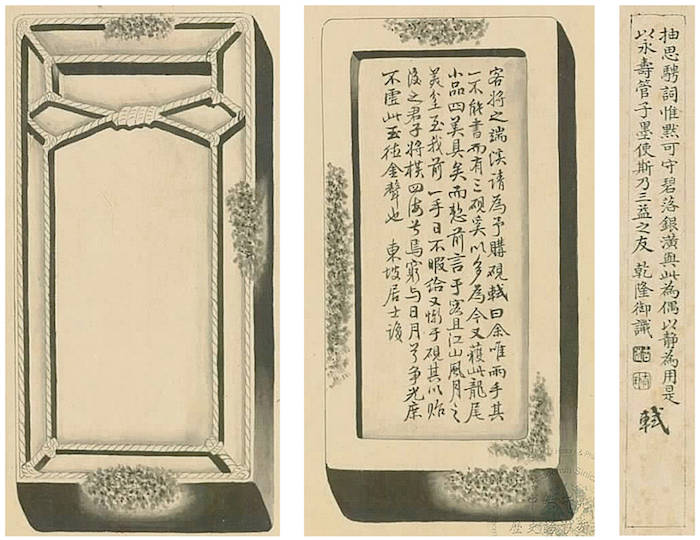 客將之端溪請為予購硯軾曰余唯兩手其
一不能書而有三硯奚以多為今又獲此龍尾
小品四美具矣而慙前言于客且江山風月之
美坌至我前一手日不暇給又慚于硯其以貽
後之君子將橫四海兮焉窮与日月兮爭光庶
不虛此玉德金聲也 東坡居士識
抽思騁詞惟默可守碧落銀潢與此為偶以靜為用是
以永壽管子墨使斯乃三益之友 乾隆御識
軾